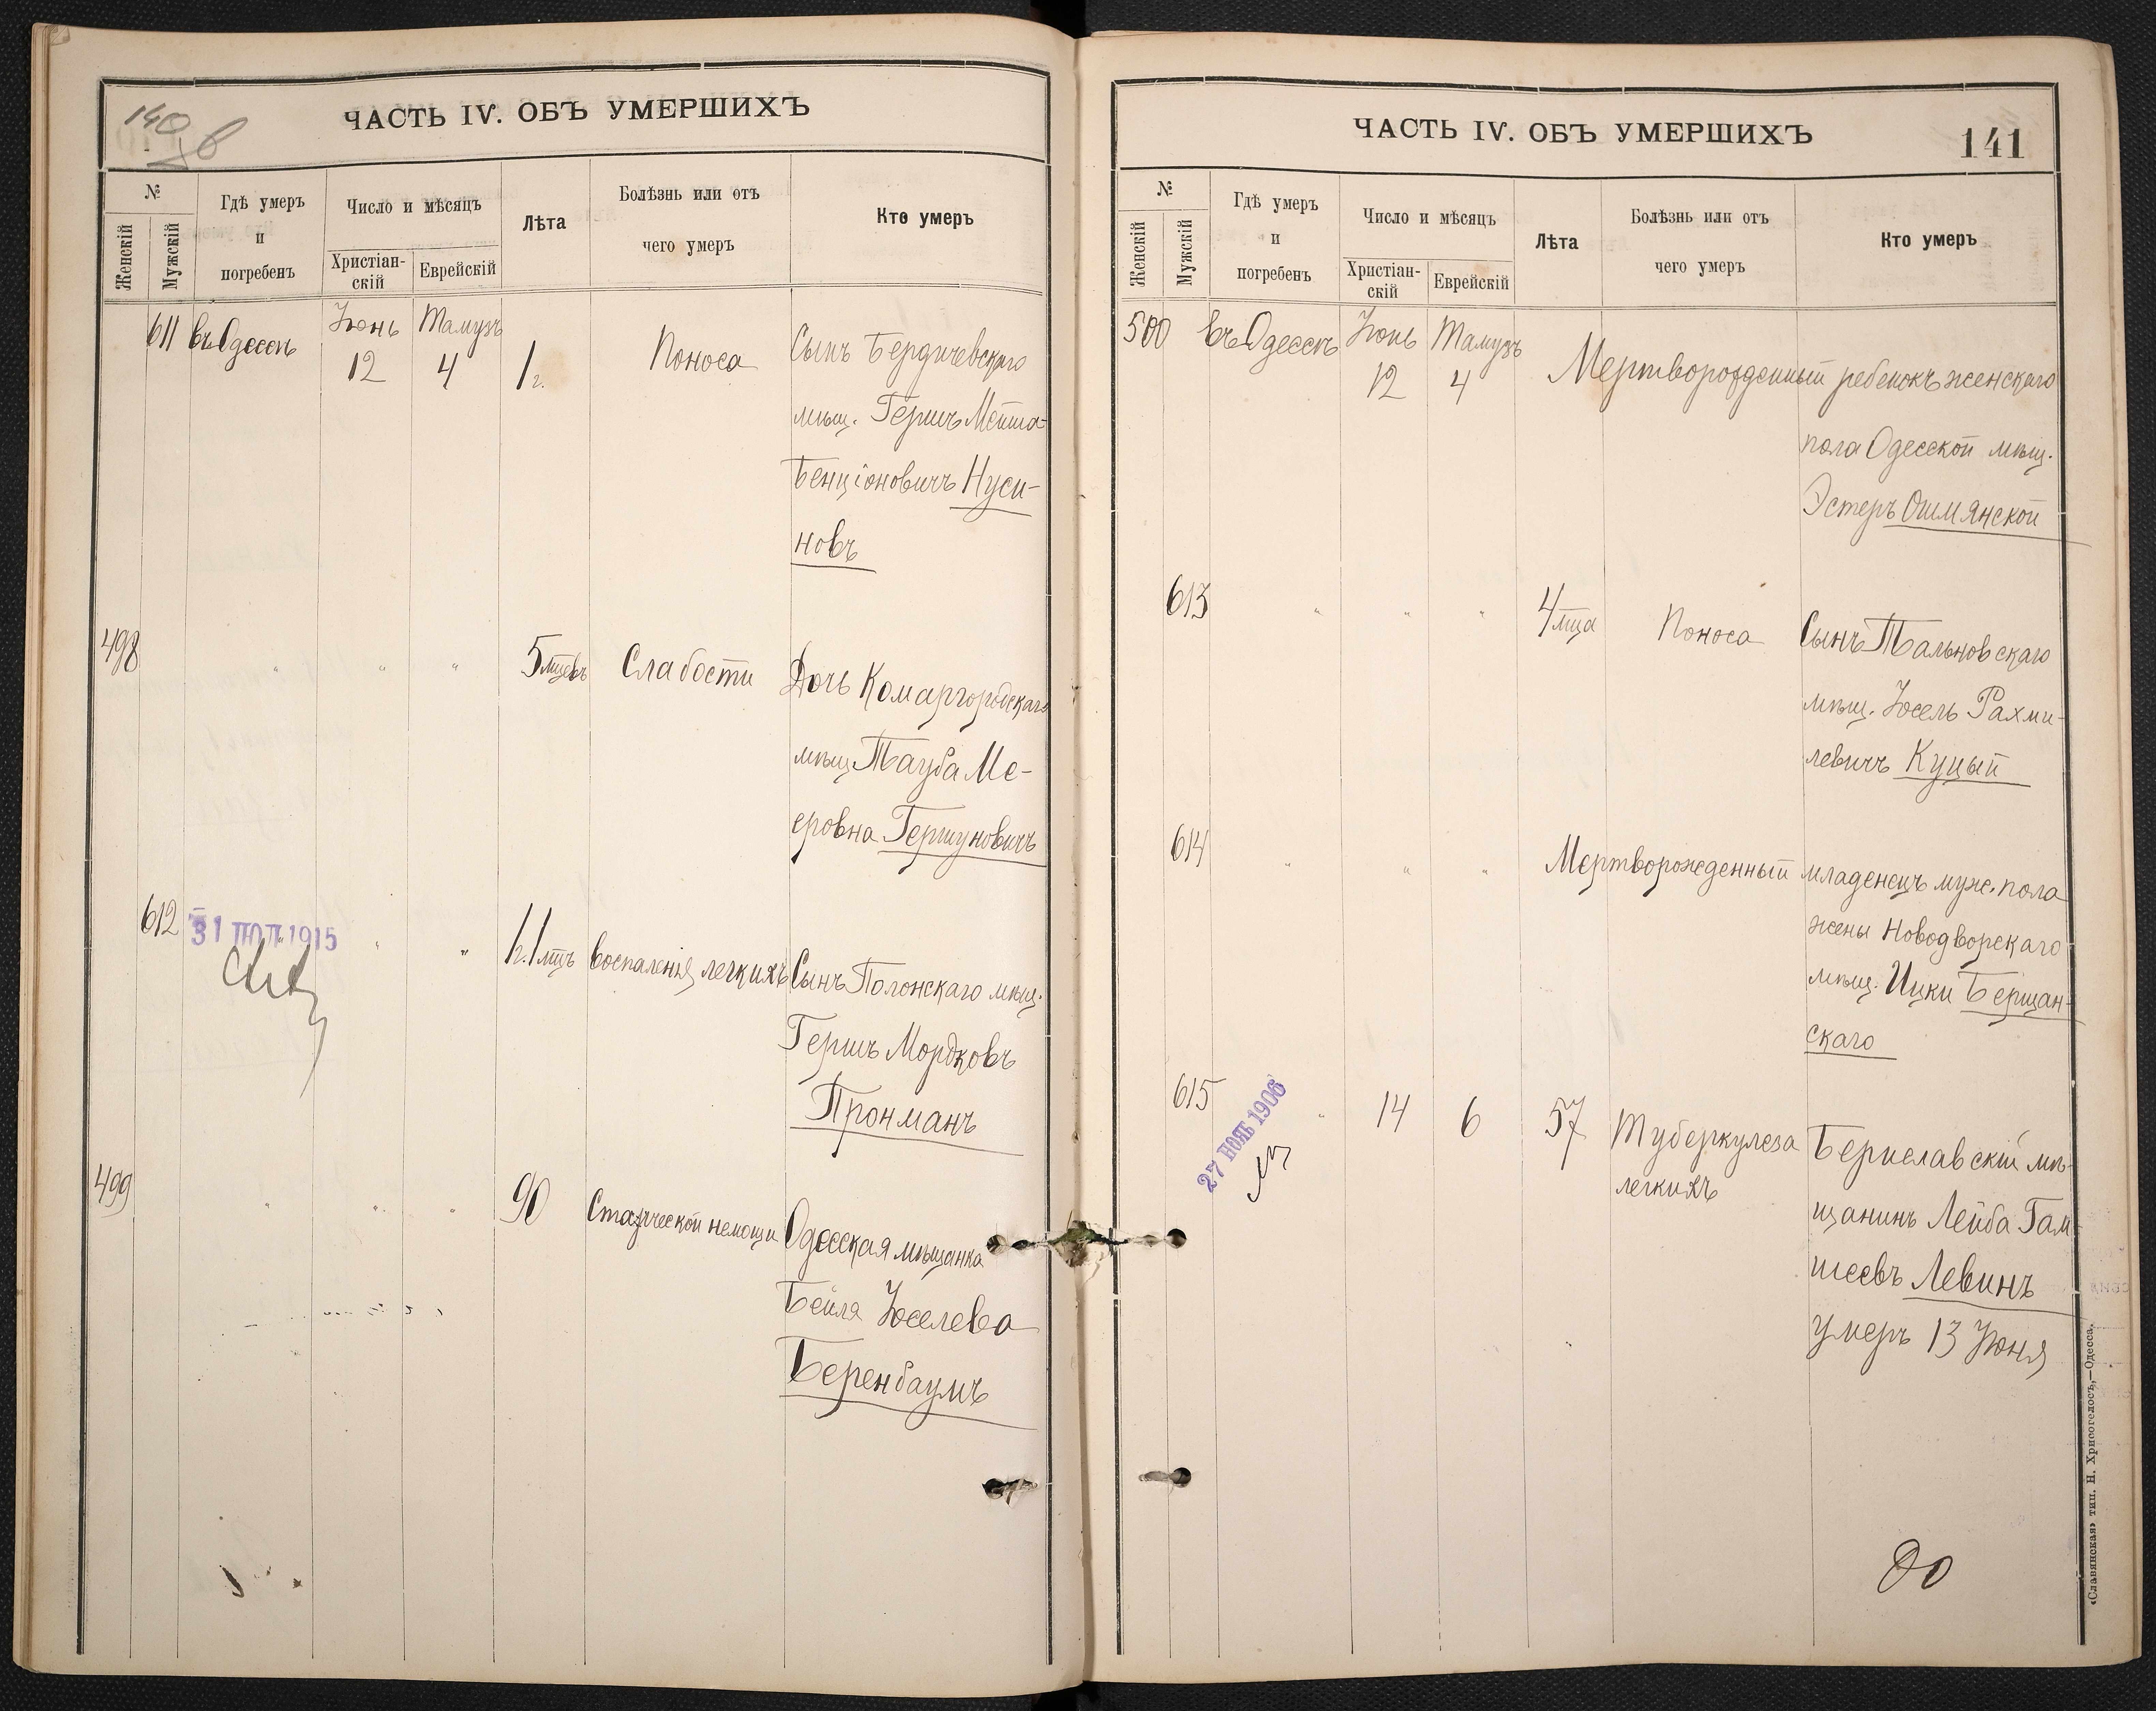 140
ЧАСТЬ IV. ОБЪ УМЕРШИХЪ
№
Женскій
Мужскій
Гдѣ умеръ
и
погребенъ
Число и мѣсяцъ
Христіан-
скій
Еврейскій
Лѣта
Болѣзнь или отъ
чего умеръ
Кто умеръ
611 въ Одессѣ Іюнь Тамузъ
12 4 1 г. Поноса Сынъ Бердичевскаго
мѣщ. Гершъ Мейта-
Бенціоновичъ Нуси-
новъ
498 " " " 5 мцевъ Слабости Дочь Комаргородскаго
мѣщ Тауба Ме-
еровна Гершуновичъ
612 " " " 1 г. 1 мцъ воспаленія легкихъ Сынъ Полонскаго мѣщ.
31 1915
Гершъ Мордковъ
Пронманъ
499 " " " 90 Старческой немощи Одесская мѣщанка
Бейля Юселева
Беренбаумъ
ЧАСТЬ IV. ОБЪ УМЕРШИХЪ
141
№
Женскій
Мужскій
Гдѣ умеръ
и
погребенъ
Число и мѣсяцъ
Христіан-
скій
Еврейскій
Лѣта
Болѣзнь или отъ
чего умеръ
Кто умеръ
500 въ Одессѣ Іюнь Тамузъ
12 4 Мертворожденный ребенокъ женскаго
пола Одесской мѣщ.
Эстеръ Ошмянской
613 " " " 4 мца Поноса Сынъ Тальновскаго
мѣщ. Юсель Рахми-
левичъ Куцый
614 " " " Мертворожденный младенецъ муж. пола
жены Новодворскаго
мѣщ. Ицки Берщан-
скаго
615 " 14 6 57 Туберкулеза
легкихъ
27 НОЯБ 1906
Бериславскій мѣ-
щанинъ Лейба Гам-
шеевъ Левинъ
умеръ 13 Іюня
«Славянская» тип. Н. Хрисогелосъ,—Одесса.